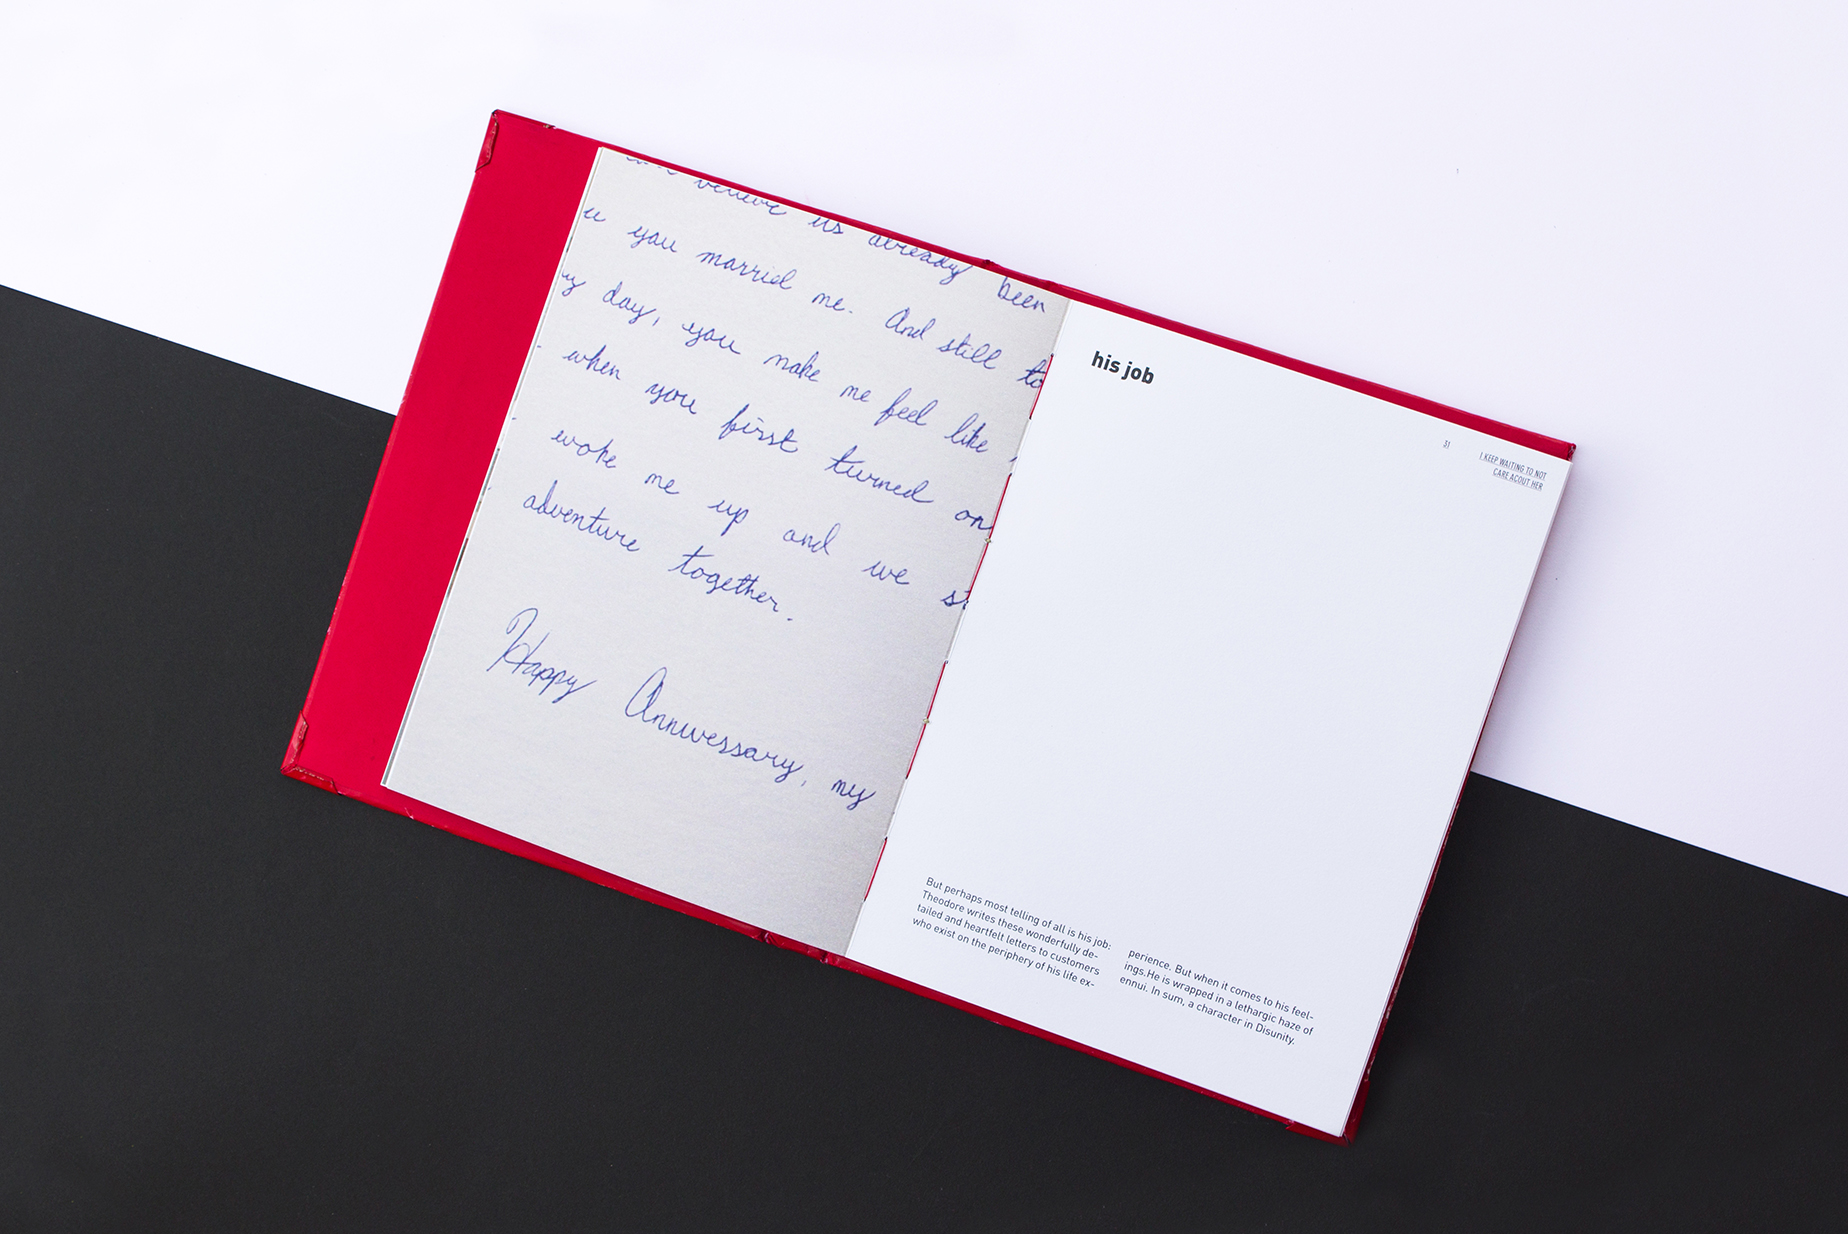 believe its already been
you married me. And still to
day, you make me feel like
when you first turned on
woke me up and we st
adventure together.
Happy Anniverssary, my
his job
51
I KEEP WAITING TO NOT
CARE ACOUT HER
But perhaps most telling of all is his job:
Theodore writes these wonderfully de-
tailed and heartfelt letters to customers
who exist on the periphery of his life ex-
perience. But when it comes to his feel-
ings.He is wrapped in a lethargic haze of
ennui. In sum, a character in Disunity.